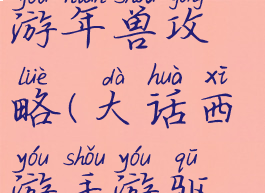 yóu nián shòu gōng
游年兽攻
lüè dà huà xī
略(大话西
yóu shǒu yóu qū
游手游驱